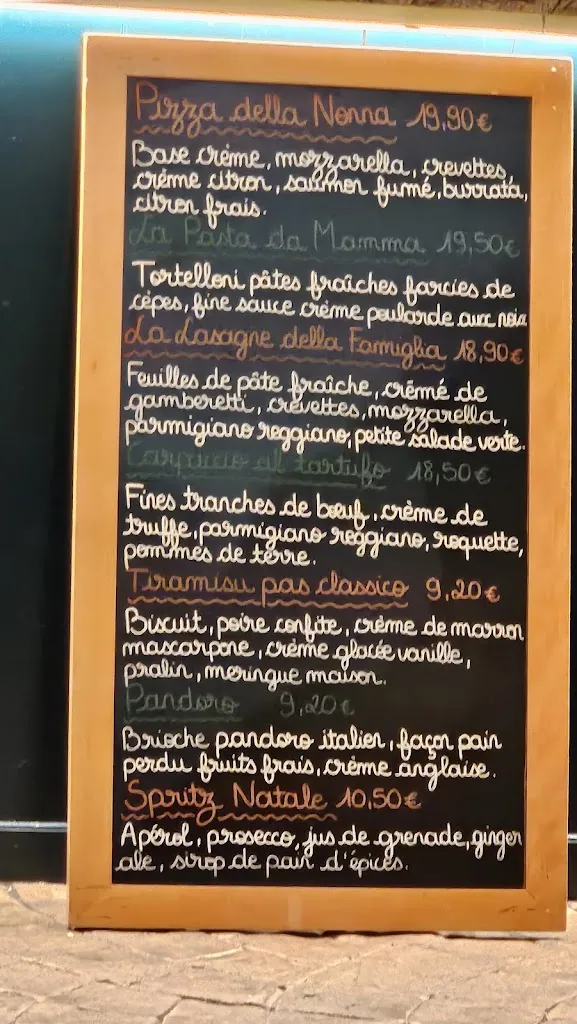 Pizza della Nonna 19,90€
Base crème, mozzarella, crevettes,
crème citron, saumon fumé, burrata,
citron frais.
La Pasta da Mamma 19,50€
Tortelloni pâtes fraîches farcies de
cèpes, fine sauce crème poularde aux noix
La Lasagne della Famiglia 18,90€
Feuilles de pâte fraîche, crémé de
gamberetti, crevettes, mozzarella,
parmigiano reggiano, petite salade verte.
Carpaccio al tartufo 18,50€
Fines tranches de bœuf, crème de
truffe, parmigiano reggiano, roquette,
pommes de terre.
Tiramisu pas classico 9,20€
Biscuit, poire confite, crème de marron
mascarpone, crème glacée vanille,
pralin, meringue maison.
Pandoro 9,20€
Brioche pandoro italien, façon pain
perdu fruits frais, crème anglaise.
Spritz Natale 10,50€
Apérol, prosecco, jus de grenade, ginger
ale, sirop de pain d'épices.